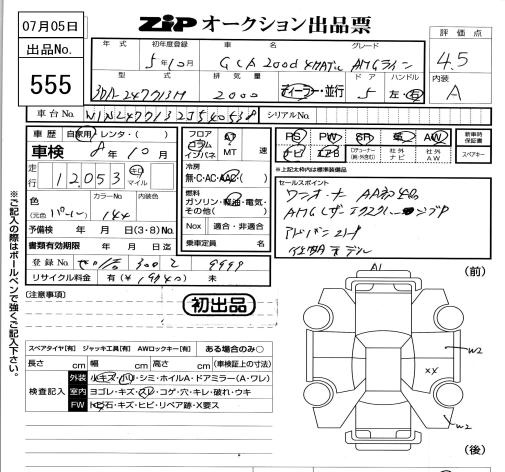 07月05日
出品No.
555
ZIP オークション出品票
評価点
4.5
内装
A
年式 初年度登録 車名 グレード
5年10月 GLA 200d 4MATIC AMGライン
型式 排気量 ドア ハンドル
3DA-247713M 2000 ディーラー・並行 5 左・右
車台No. シリアルNo.
車歴 自家用・レンタ・( )
車検 8年10月
走行 12,053 キロ マイル
色 カラーNo. 内装色
(元色 ) 144
予備検 年 月 日(3・8)No.
書類有効期限 年 月 日迄
登録No. 300 9999
リサイクル料金 有(¥ ) 未
フロア AT
コラム
インパネ MT 速
冷房
無・C・AC・AAC・( )
燃料
ガソリン・軽油・電気・
その他( )
Nox 適合・非適合
乗車定員 名
PS PW SR 革 AW
ナビ エアB Dチューナー(純・外含む) 社外ナビ 社外AW
新車時保証書
スペアキー
※上記太枠内は標準装備品
セールスポイント
ワンオーナー
AMGレザーエクスクルーシブP
アドバンストP
※ご記入の際はボールペンで強くご記入下さい。
[注意事項]
初出品
スペアタイヤ[有] ジャッキ工具[有] AWロックキー[有] ある場合のみ○
長さ cm 幅 cm 高さ cm (車検証上の寸法)
検査記入
外装 小キズ・小U・シミ・ホイルA・ドアミラー(A・ワレ)
室内 ヨゴレ・キズ・スレ・コゲ・穴・キレ・破れ・ウキ
FW トビ石・キズ・ヒビ・リペア跡・X要ス
(前)
A1
W2
XX
W2
(後)